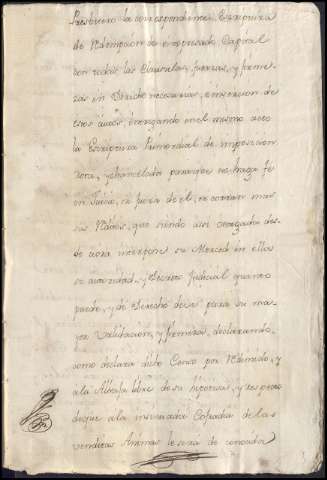 Presbitero la correspondiente Escriptura
de Redempcion de expresado Capital
con todas las Clausulas, fuerzas, y firme-
zas en Derecho necesarias, e insercion de
estos autos, entregando en el mismo acto
la Escriptura Primordial de imposicion
rota, y chancelada para que no haga fé
en Juicio, ni fuera de el, ni corran mas
sus Reditos, que siendo asi otorgada des-
de aora interpone su Merced en ellos
su autoridad, y Decreto Judicial quanto
puede, y de Derecho deve para su ma-
yor validacion, y firmeza, declarando,
como declara dicho Censo por Redimido, y
a la Alhaja libre de su hipoteca, y respecto
de que a la insinuada Cofradia de las
venditas Animas le sera de